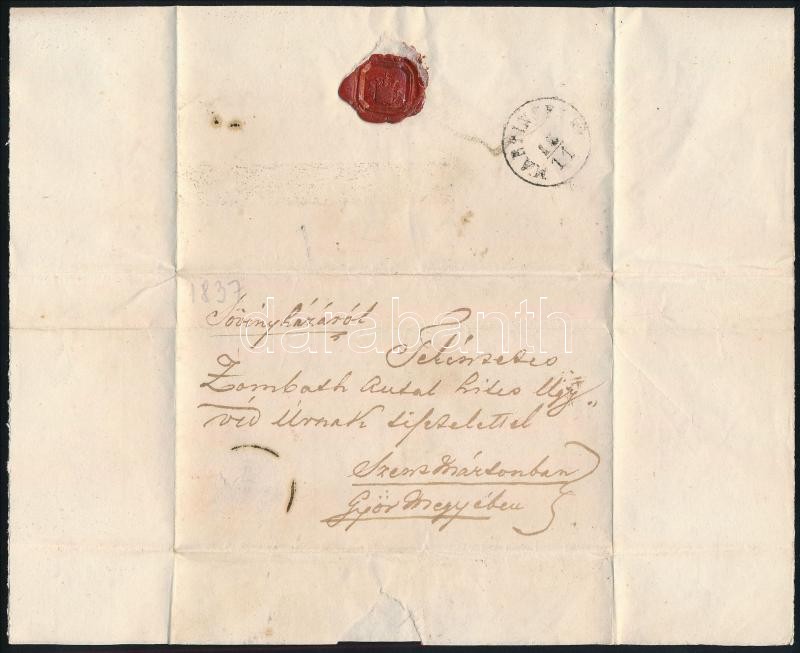 MARTINSBERG
16
11
1837
Sövényházáról
Tekintetes
Zombath Antal hites Ügy„
véd Úrnak tisztelettel
Szent Mártonban
Győr Megyében
darabanth